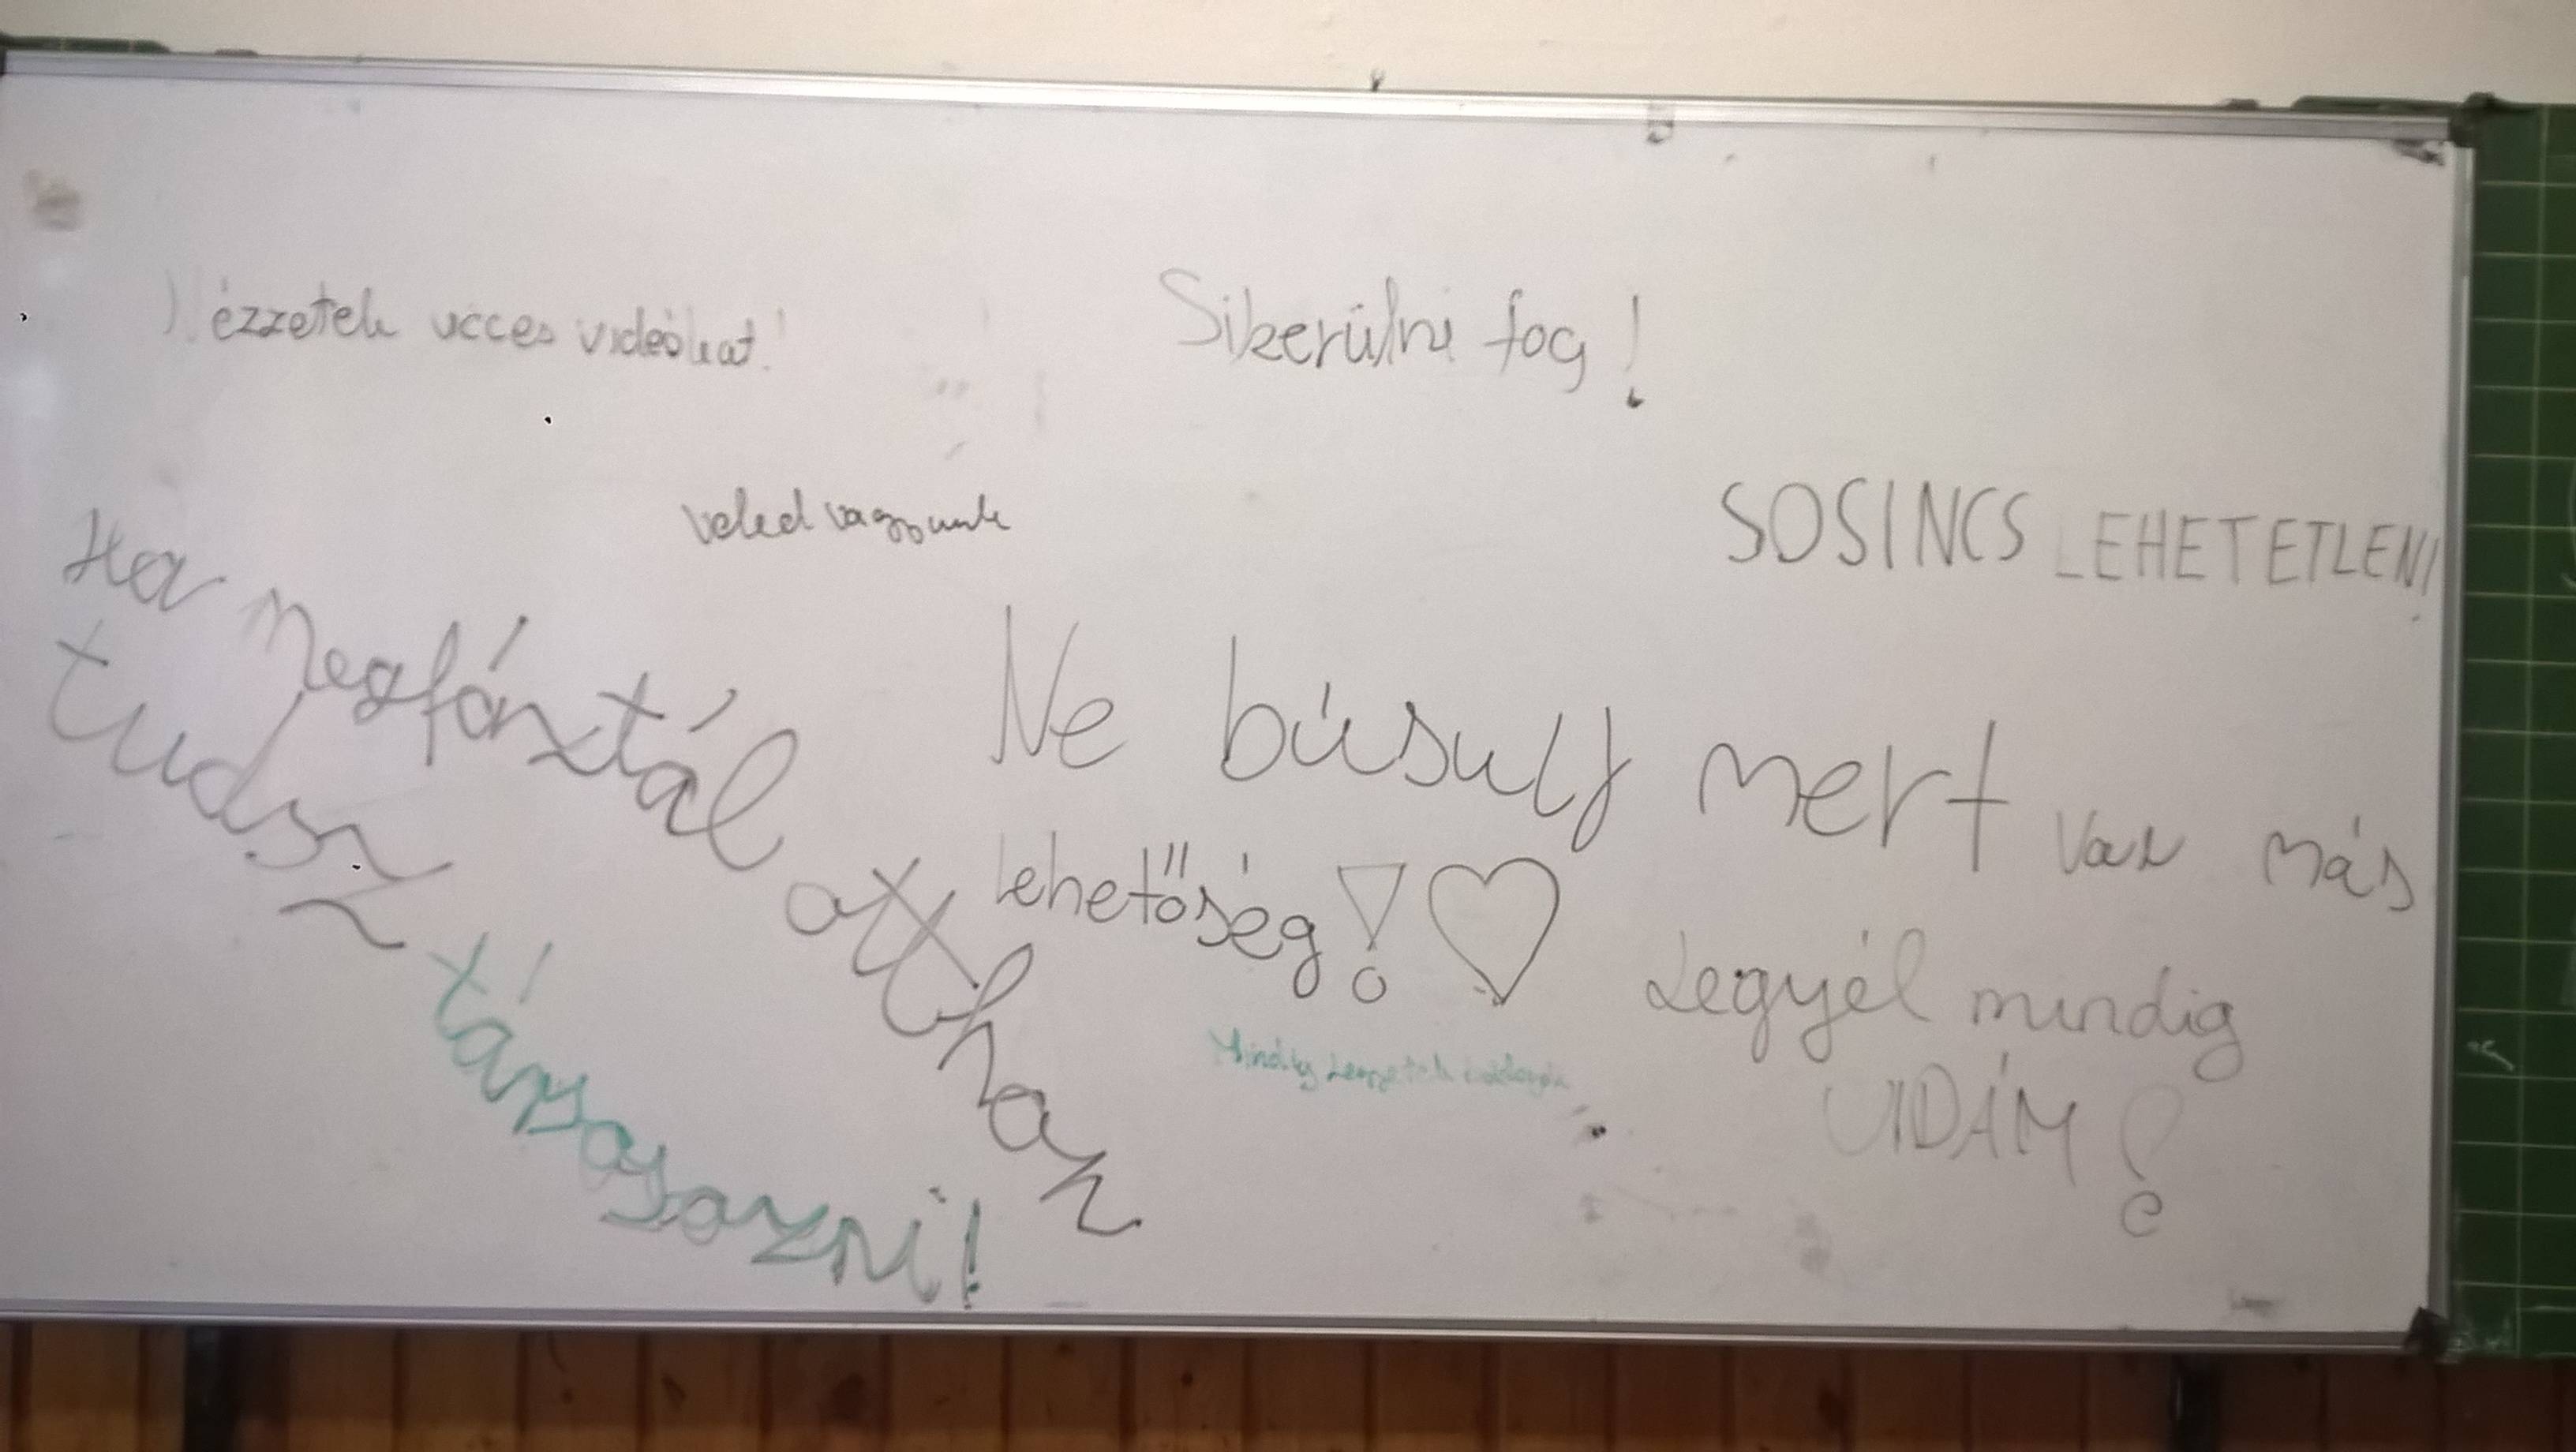 Nézzetek vicces videókat!
Sikerülni fog!
veled vagyunk
SOSINCS LEHETETLEN!
Ha megfáztál otthon
tudsz társasozni!
Ne búsulj mert van más
lehetőség! ♡
Legyél mindig
VIDÁM!
Mindig legyetek